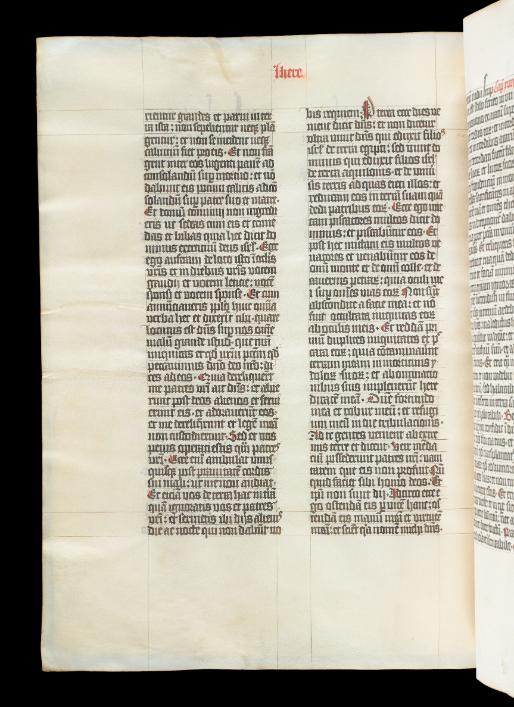 There
rientur grandes et parui in ter
ra ista: non sepelientur neqꝫ plā
gentur: et non se incident neqꝫ
caluiciū fiet pro eis. Et non frā
gent inter eos lugenti panē ad
consolandū suꝑ mortuo: et nō
dabunt eis potum calicis ad cō
solandū suꝑ patre suo et matre.
Et domū conuiuij non ingredi
eris ut sedeas cum eis et come
das et bibas quia hec dicit do
minus exercituū deus isrl̄. Ecce
ego auferam de loco isto ī oclis
vr̄is et in diebus vr̄is vocem
gaudij et vocem leticie: vocē
sponsi et vocem sponse. Et cum
annūciaueris ppl̄o huic omīa
verba hec et dixerit tibi: quare
locutus est dn̄s suꝑ nos om̄e
malū grande istud: que nr̄a
iniquitas et qd̄ nr̄m pctm̄ qd̄
peccauimus dn̄o deo nr̄o: di
ces ad eos. Quia dereliquerūt
me patres vr̄i ait dn̄s: et abie
runt post deos alienos et serui
erunt eis. et adorauerūt eos:
et me dereliquerūt et legē meā
non custodierunt. Sed et vos
peius operati estis qm̄ patres
vr̄i. Ecce em̄ ambulat vnus
quisqꝫ post prauitatē cordis
sui mali: ut me non audiat.
Et eiciā vos de terra hac in terrā
quā ignoratis vos et patres
vr̄i: et seruietis ibi dijs alienis
die ac nocte qui non dabūt uo
bis requiem. Propterea ecce dies ve
nient dicit dn̄s: et non dicetur
vltra viuit dn̄s qui eduxit filios
isrl̄ de terra egipti: sed viuit do
minus qui eduxit filios isrl̄
de terra aquilonis. et de vniuer
sis terris ad quas eieci illos: et
reducam eos in terrā suam quā
dedi patribus eoꝝ. Ecce ego mit
tam piscatores multos dicit do
minus: et piscabūtur eos. Et
post hec mittam eis multos ve
natores et venabūtur eos de
om̄i monte et de om̄i colle. et de
cauernis petraꝝ: quia oculi me
i suꝑ om̄es vias eoꝝ. Non sūt
absconditi a facie mea: et nō
fuit occultata iniquitas eoꝝ
ab oculis meis. Et reddā pri
mū duplices iniquitates et p
cata eoꝝ: quia cōtaminauer̄t
terram meam in morticinis y
doloꝝ suoꝝ: et abominatio
nibus suis impleuerūt here
ditatē meā. Dn̄e fortitudo
mea et robur meū: et refugi
um meū in die tribulationis.
Ad te gentes venient ab extre
mis terre et dicent. Vere mēda
ciū possederunt patres nr̄i: vani
tatem que eis non profuit. Nū
quid faciet sibi homo deos: et
ip̄i non sunt dij. Idcirco ecce e
go ostendā eis ꝑ vicē hanc: os
tendā eis manū meā et virtutē
meā: et sciēt qꝛ nomē michi dn̄s.